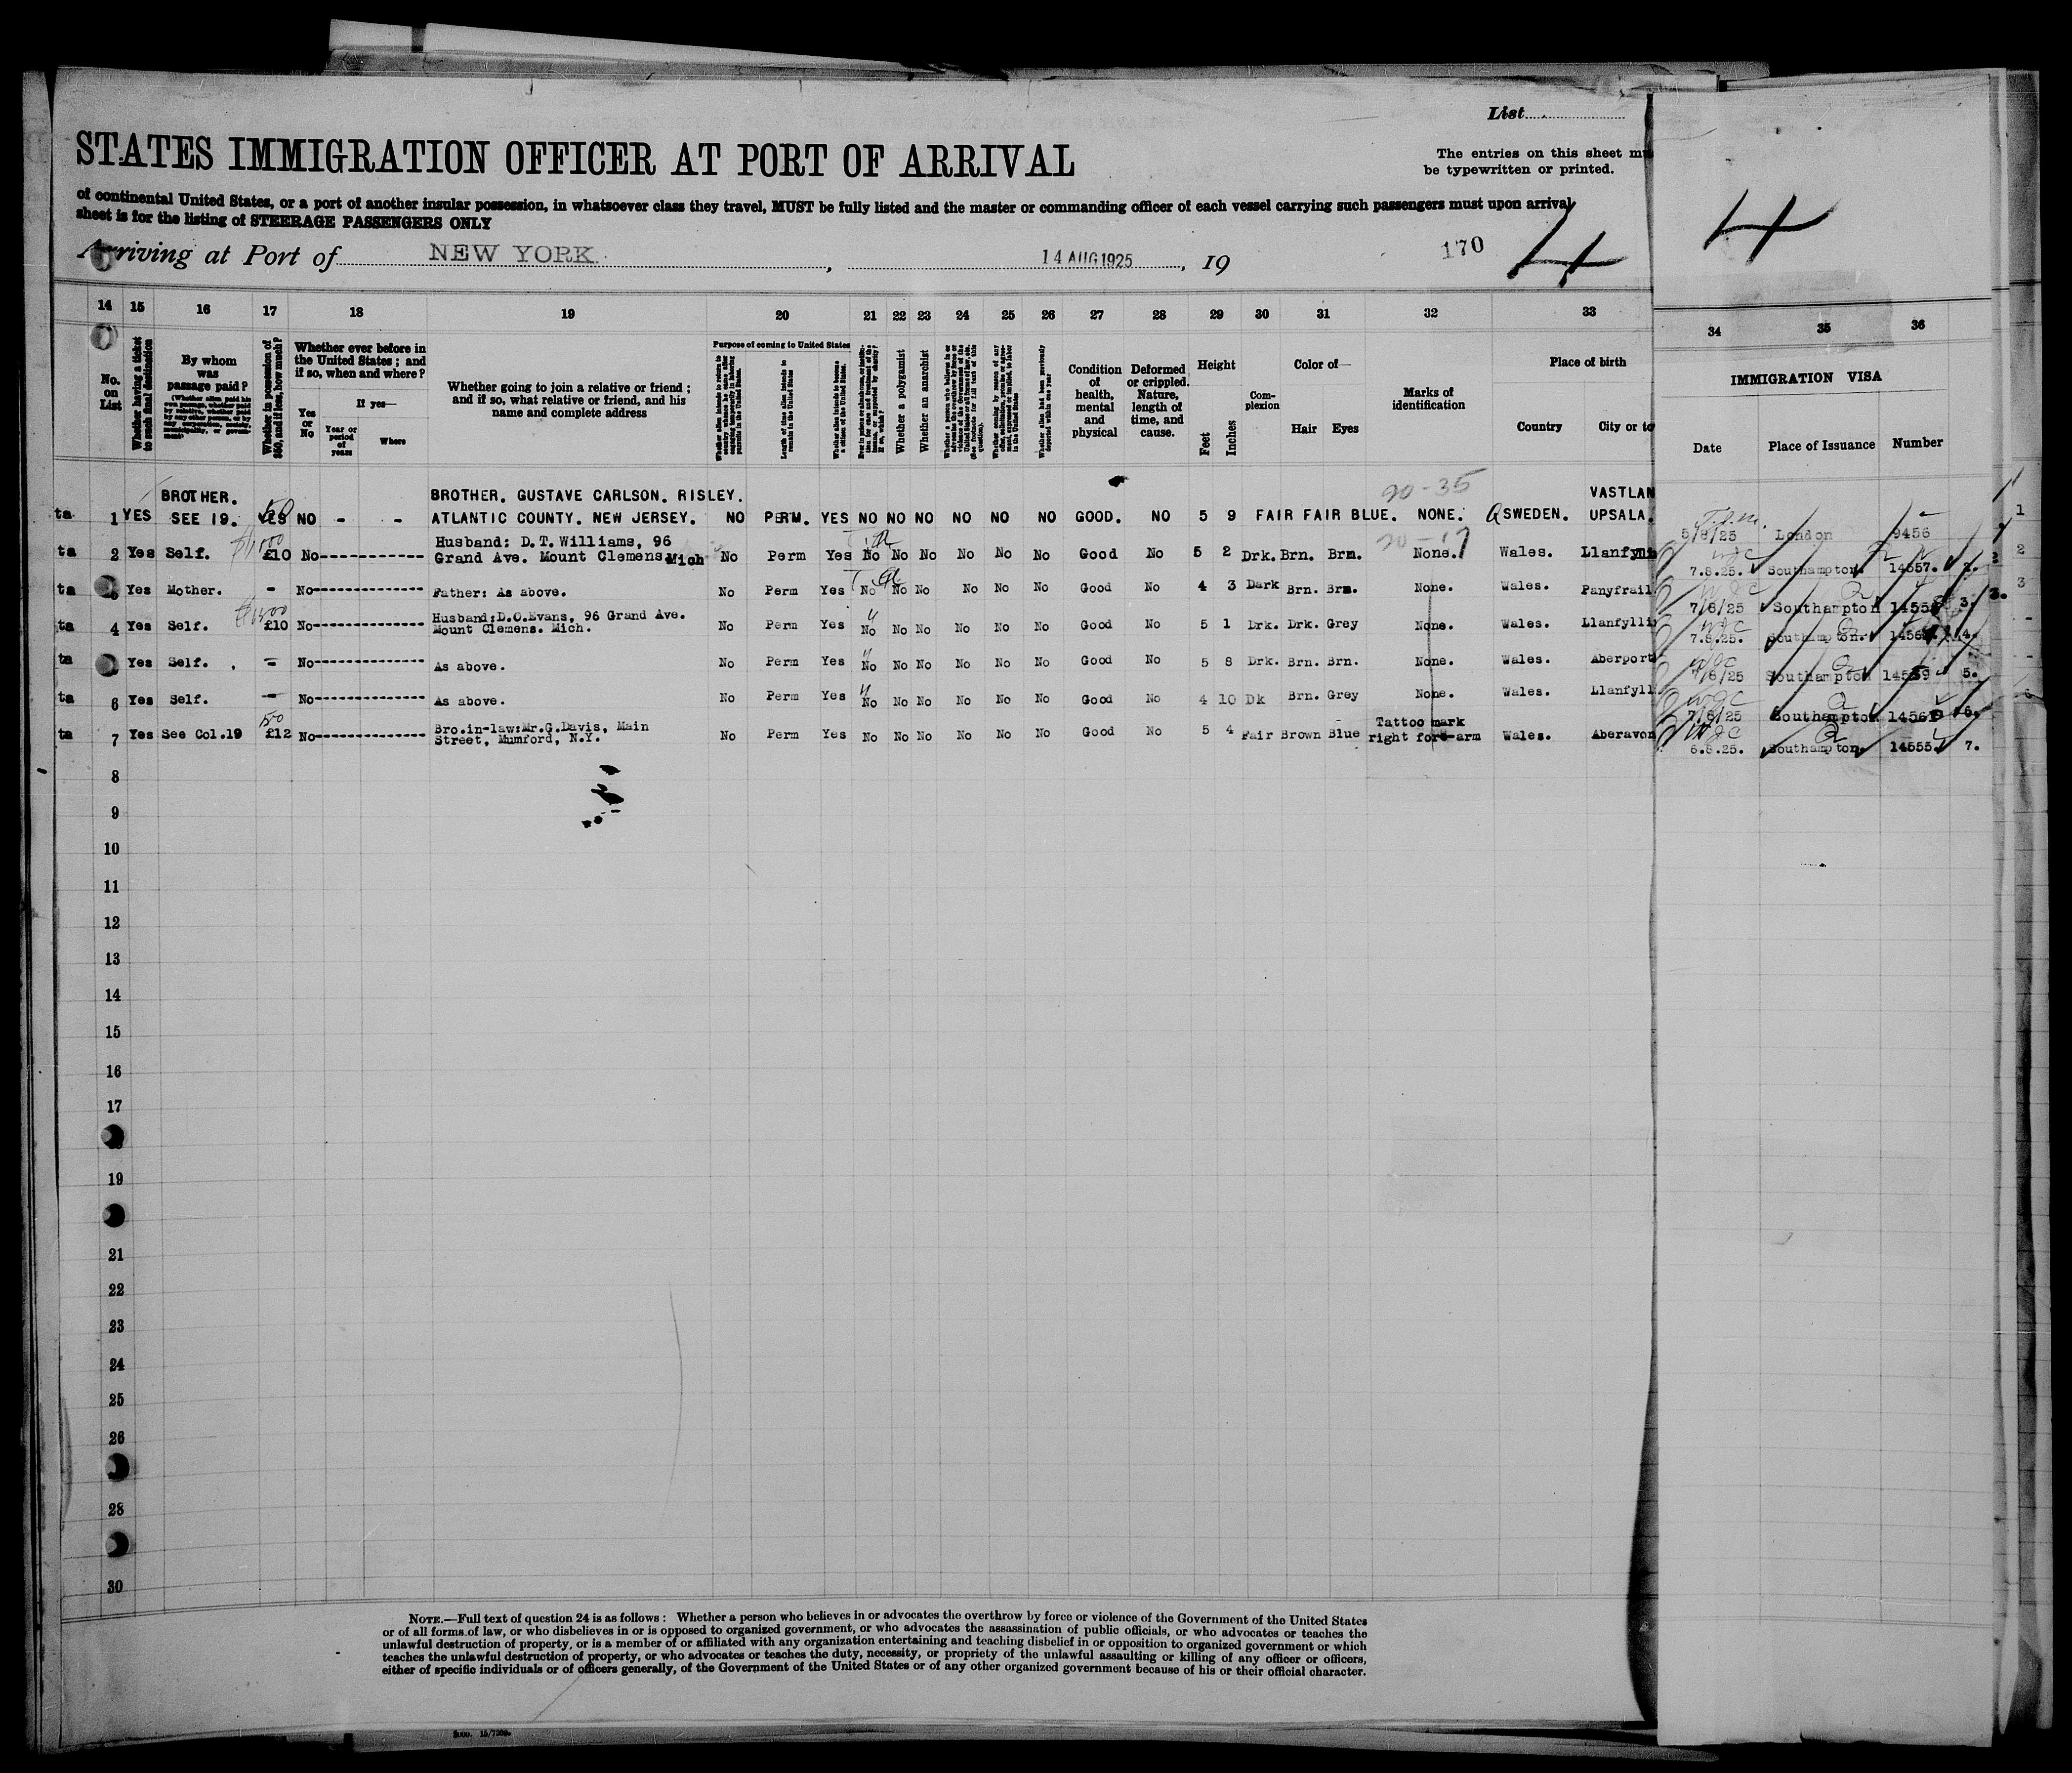 List
STATES IMMIGRATION OFFICER AT PORT OF ARRIVAL
The entries on this sheet
be typewritten or printed.
of continental United States, or a port of another insular possession, in whatsoever class they travel, MUST be fully listed and the master or commanding officer of each vessel carrying such passengers must upon arrival
sheet is for the listing of STEERAGE PASSENGERS ONLY
Arriving at Port of NEW YORK, 14 AUG 1925, 19
170 4
4
14 15 16 17 18 19 20 21 22 23 24 25 26 27 28 29 30 31 32 33 34 35 36
No. on List
Whether having a ticket to such final destination
By whom was passage paid?
Whether in possession of $50, and if less, how much?
Whether ever before in the United States; and if so, when and where?
Yes or No
If yes—
Year or period of years
Where
Whether going to join a relative or friend; and if so, what relative or friend, and his name and complete address
Purpose of coming to United States
Length of time alien intends to remain in the United States
Whether a polygamist
Whether an anarchist
Condition of health, mental and physical
Deformed or crippled. Nature, length of time, and cause.
Height
Feet Inches
Complexion
Color of—
Hair Eyes
Marks of identification
Place of birth
Country City or
IMMIGRATION VISA
Date Place of Issuance Number
BROTHER. BROTHER. GUSTAVE CARLSON. RISLEY. 20-35 VASTLAN
ta 1 YES SEE 19. YES 50 NO - - ATLANTIC COUNTY. NEW JERSEY. NO PERM. YES NO NO NO NO NO NO GOOD. NO 5 9 FAIR FAIR BLUE. NONE. SWEDEN. UPSALA. 5/8/25 London 9456 1
Husband: D.T.Williams, 96
ta 2 Yes Self. £10 No Grand Ave. Mount Clemens. Mich No Perm Yes No No No No No No Good No 5 2 Drk. Brn. Brn. None. Wales. Llanfyllin 7.8.25. Southampton. 14557. 2.
ta Yes Mother. - No Father: As above. No Perm Yes No No No No No No Good No 4 3 Dark Brn. Brn. None. Wales. Panyfrail 7/8/25 Southampton 3.
Husband:D.O.Evans, 96 Grand Ave.
ta 4 Yes Self. £10 No Mount Clemens. Mich. No Perm Yes No No No No No No Good No 5 1 Drk. Drk. Grey None. Wales. Llanfylli 7.8.25. Southampton. 4.
ta Yes Self. - No As above. No Perm Yes No No No No No No Good No 5 8 Drk. Brn. Brn. None. Wales. Aberport 7/8/25 Southampton 14559 5.
ta 6 Yes Self. - No As above. No Perm Yes No No No No No No Good No 4 10 Dk Brn. Grey None. Wales. Llanfyll 7/8/25 Southampton 6.
50 Bro.in-law:Mr.G.Davis, Main Tattoo mark
ta 7 Yes See Col.19 £12 No Street, Mumford, N.Y. No Perm Yes No No No No No No Good No 5 4 Fair Brown Blue right fore-arm Wales. Aberavon 6.8.25. Southampton. 14555. 7.
8
9
10
11
12
13
14
15
16
17
19
21
22
23
24
25
26
28
30
NOTE.—Full text of question 24 is as follows: Whether a person who believes in or advocates the overthrow by force or violence of the Government of the United States
or of all forms of law, or who disbelieves in or is opposed to organized government, or who advocates the assassination of public officials, or who advocates or teaches the
unlawful destruction of property, or is a member of or affiliated with any organization entertaining and teaching disbelief in or opposition to organized government or which
teaches the unlawful destruction of property, or who advocates or teaches the duty, necessity, or propriety of the unlawful assaulting or killing of any officer or officers,
either of specific individuals or of officers generally, of the Government of the United States or of any other organized government because of his or their official character.